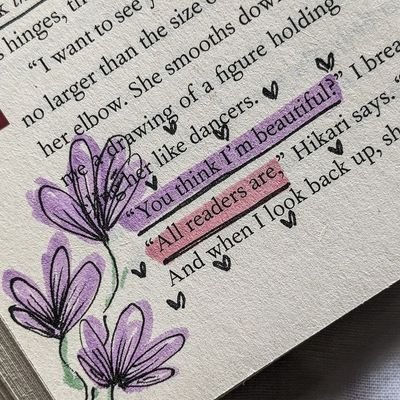 hinges, th
“I want to see y
no larger than the size o
her elbow. She smooths dow
me a drawing of a figure holding
her like dancers.
“You think I’m beautiful?” I brea
“All readers are,” Hikari says. “
And when I look back up, sh